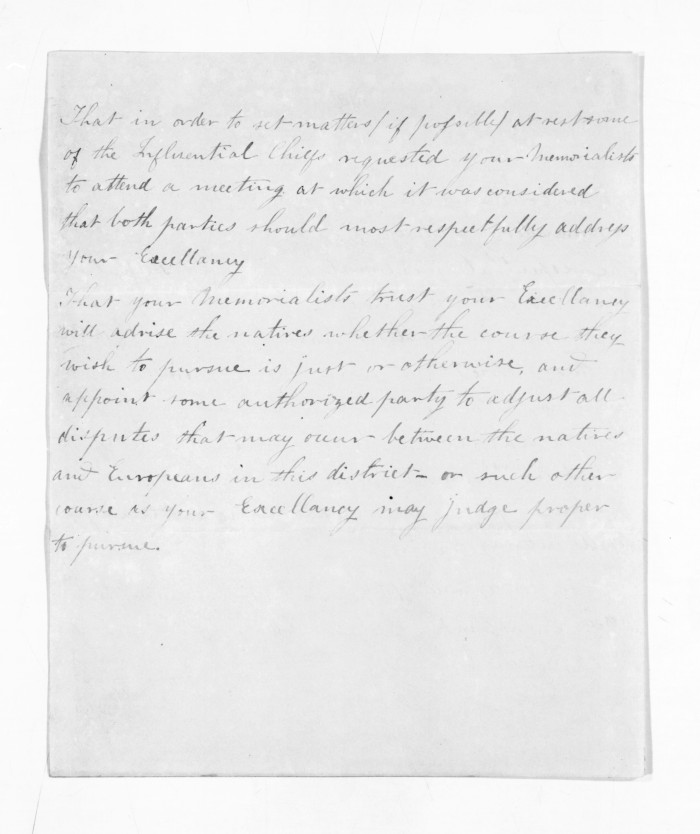 That in order to set matters (if possible) at rest some
of the Influential Chiefs requested your Memorialists
to attend a meeting at which it was considered
that both parties should most respectfully address
your Excellancy
That your Memorialists trust your Excellancy
will advise the natives whether the course they
wish to pursue is just or otherwise, and
appoint some authorized party to adjust all
disputes that may occur between the natives
and Europeans in this district - or such other
course as your Excellancy may judge proper
to pursue.